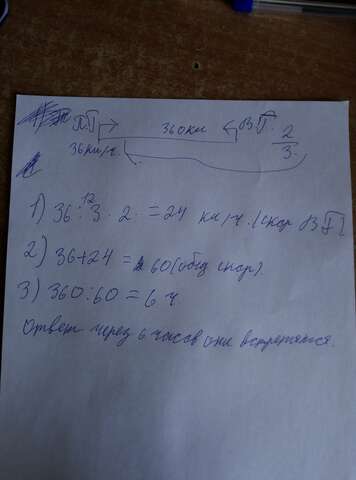 360км
2
3
36км/ч.
1) 36 : 3 · 2 = 24 км/ч. (скор В
12
2) 36+24 = 60 (общ скор).
3) 360:60 = 6 ч.
Ответ через 6 часов они встретятся.